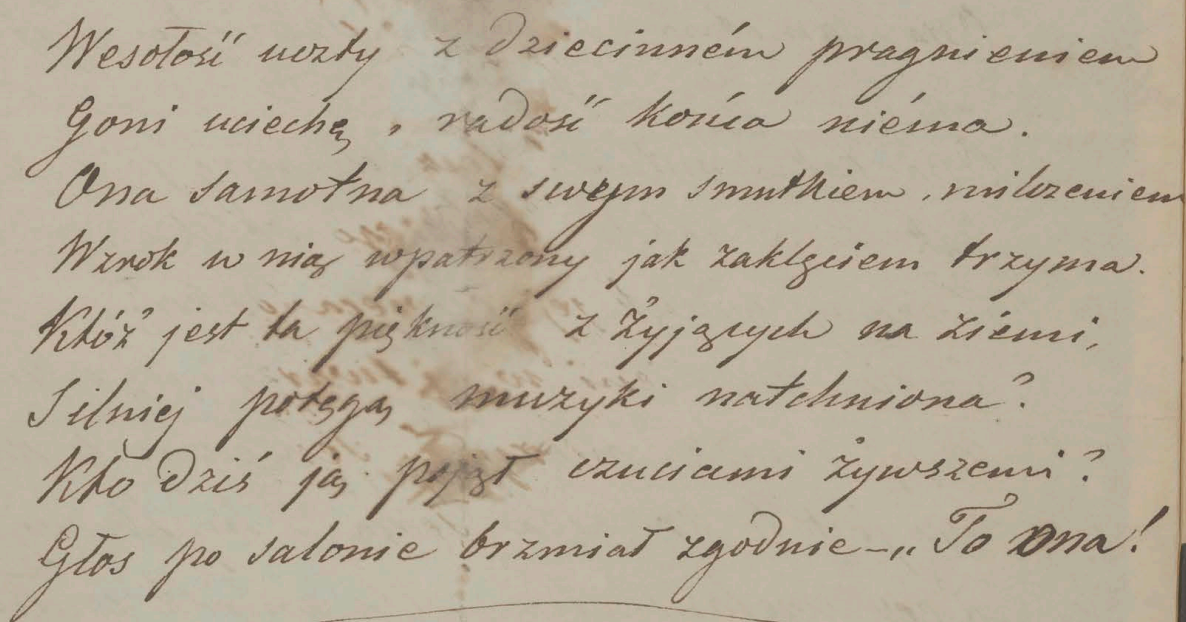 Wesołość uczty z dziecinném pragnieniem
Goni uciechę, radość końca niéma.
Ona samotna z swym smutkiem, milczeniem
Wzrok w nią wpatrzony jak zaklęciem trzyma.
Któż jest ta piękność z żyjących na ziémi,
Silniej potęgą muzyki natchniona?
Kto dziś ją pojął czuciami żywszemi?
Głos po salonie brzmiał zgodnie – „To ona!